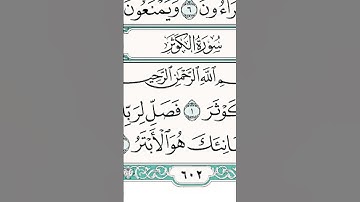 رَاءُونَ ٦ وَيَمْنَعُونَ
سُورَةُ الْكَوْثَرِ
ٱللَّهِ ٱلرَّحْمَٰنِ ٱلرَّحِيمِ
كَوْثَرَ ١ فَصَلِّ لِرَبِّ
انِئَكَ هُوَ ٱلْأَبْتَرُ
٦٠٢